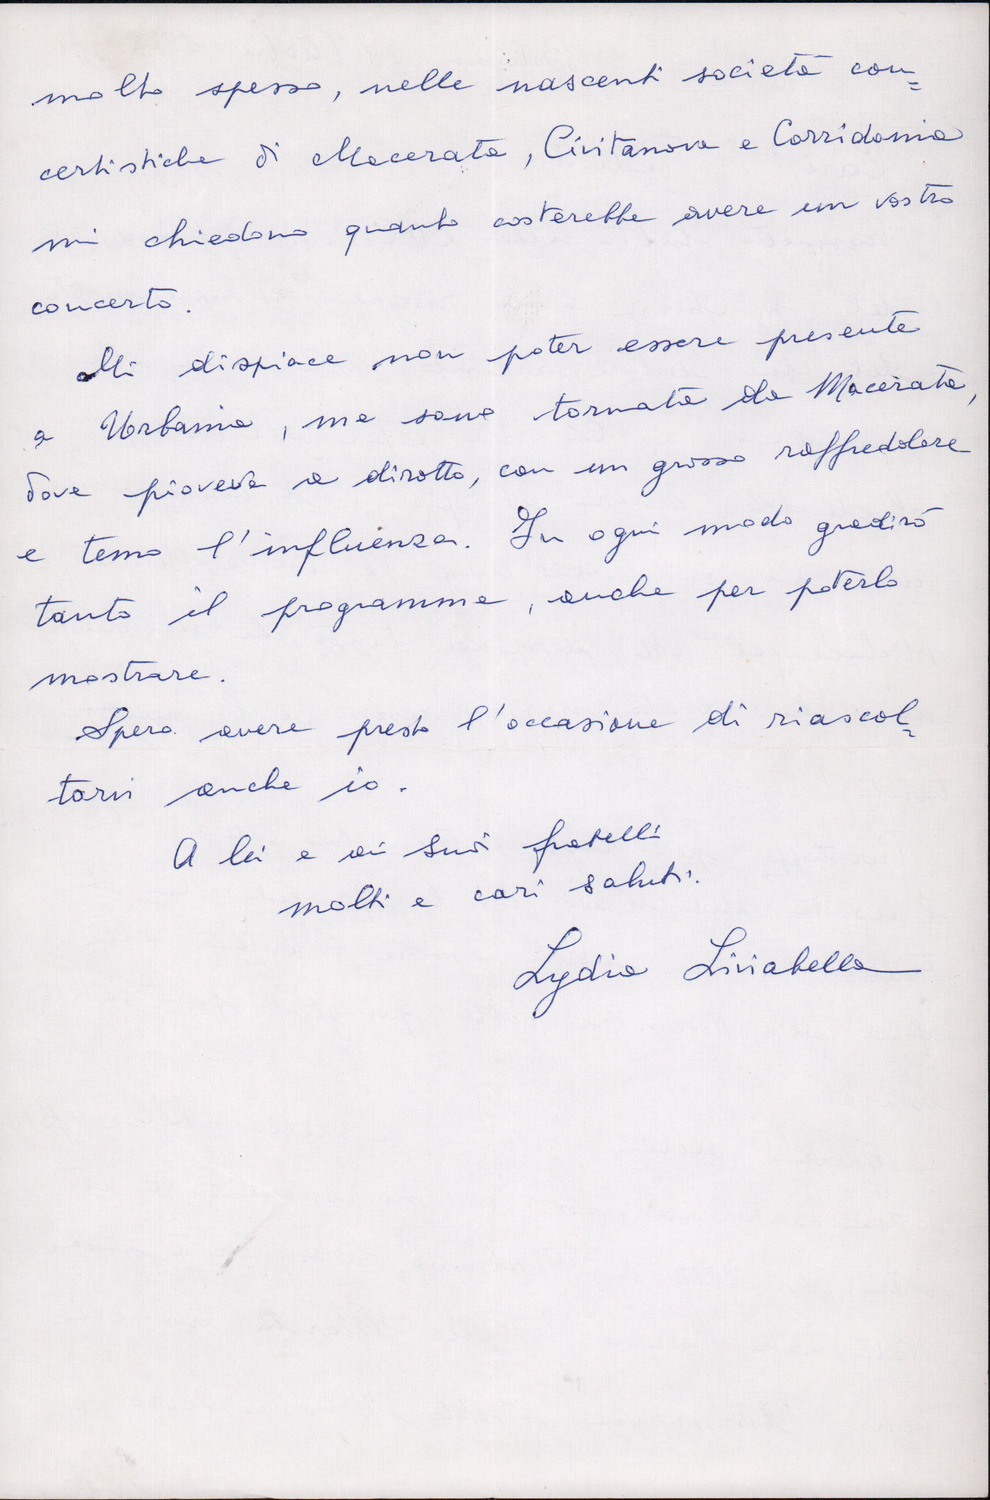 molto spesso, nelle nascenti società con=
certistiche di Macerata, Civitanova e Corridonia
mi chiedono quanto costerebbe avere un vostro
concerto.
Mi dispiace non poter essere presente
a Urbania, ma sono tornata da Macerata,
dove pioveva a dirotto, con un grosso raffreddore
e temo l'influenza. In ogni modo gradirò
tanto il programma, anche per poterlo
mostrare.
Spero avere presto l'occasione di riascol=
tarvi anche io.
A lei e ai suoi fratelli
molti e cari saluti.
Lydia Liviabella